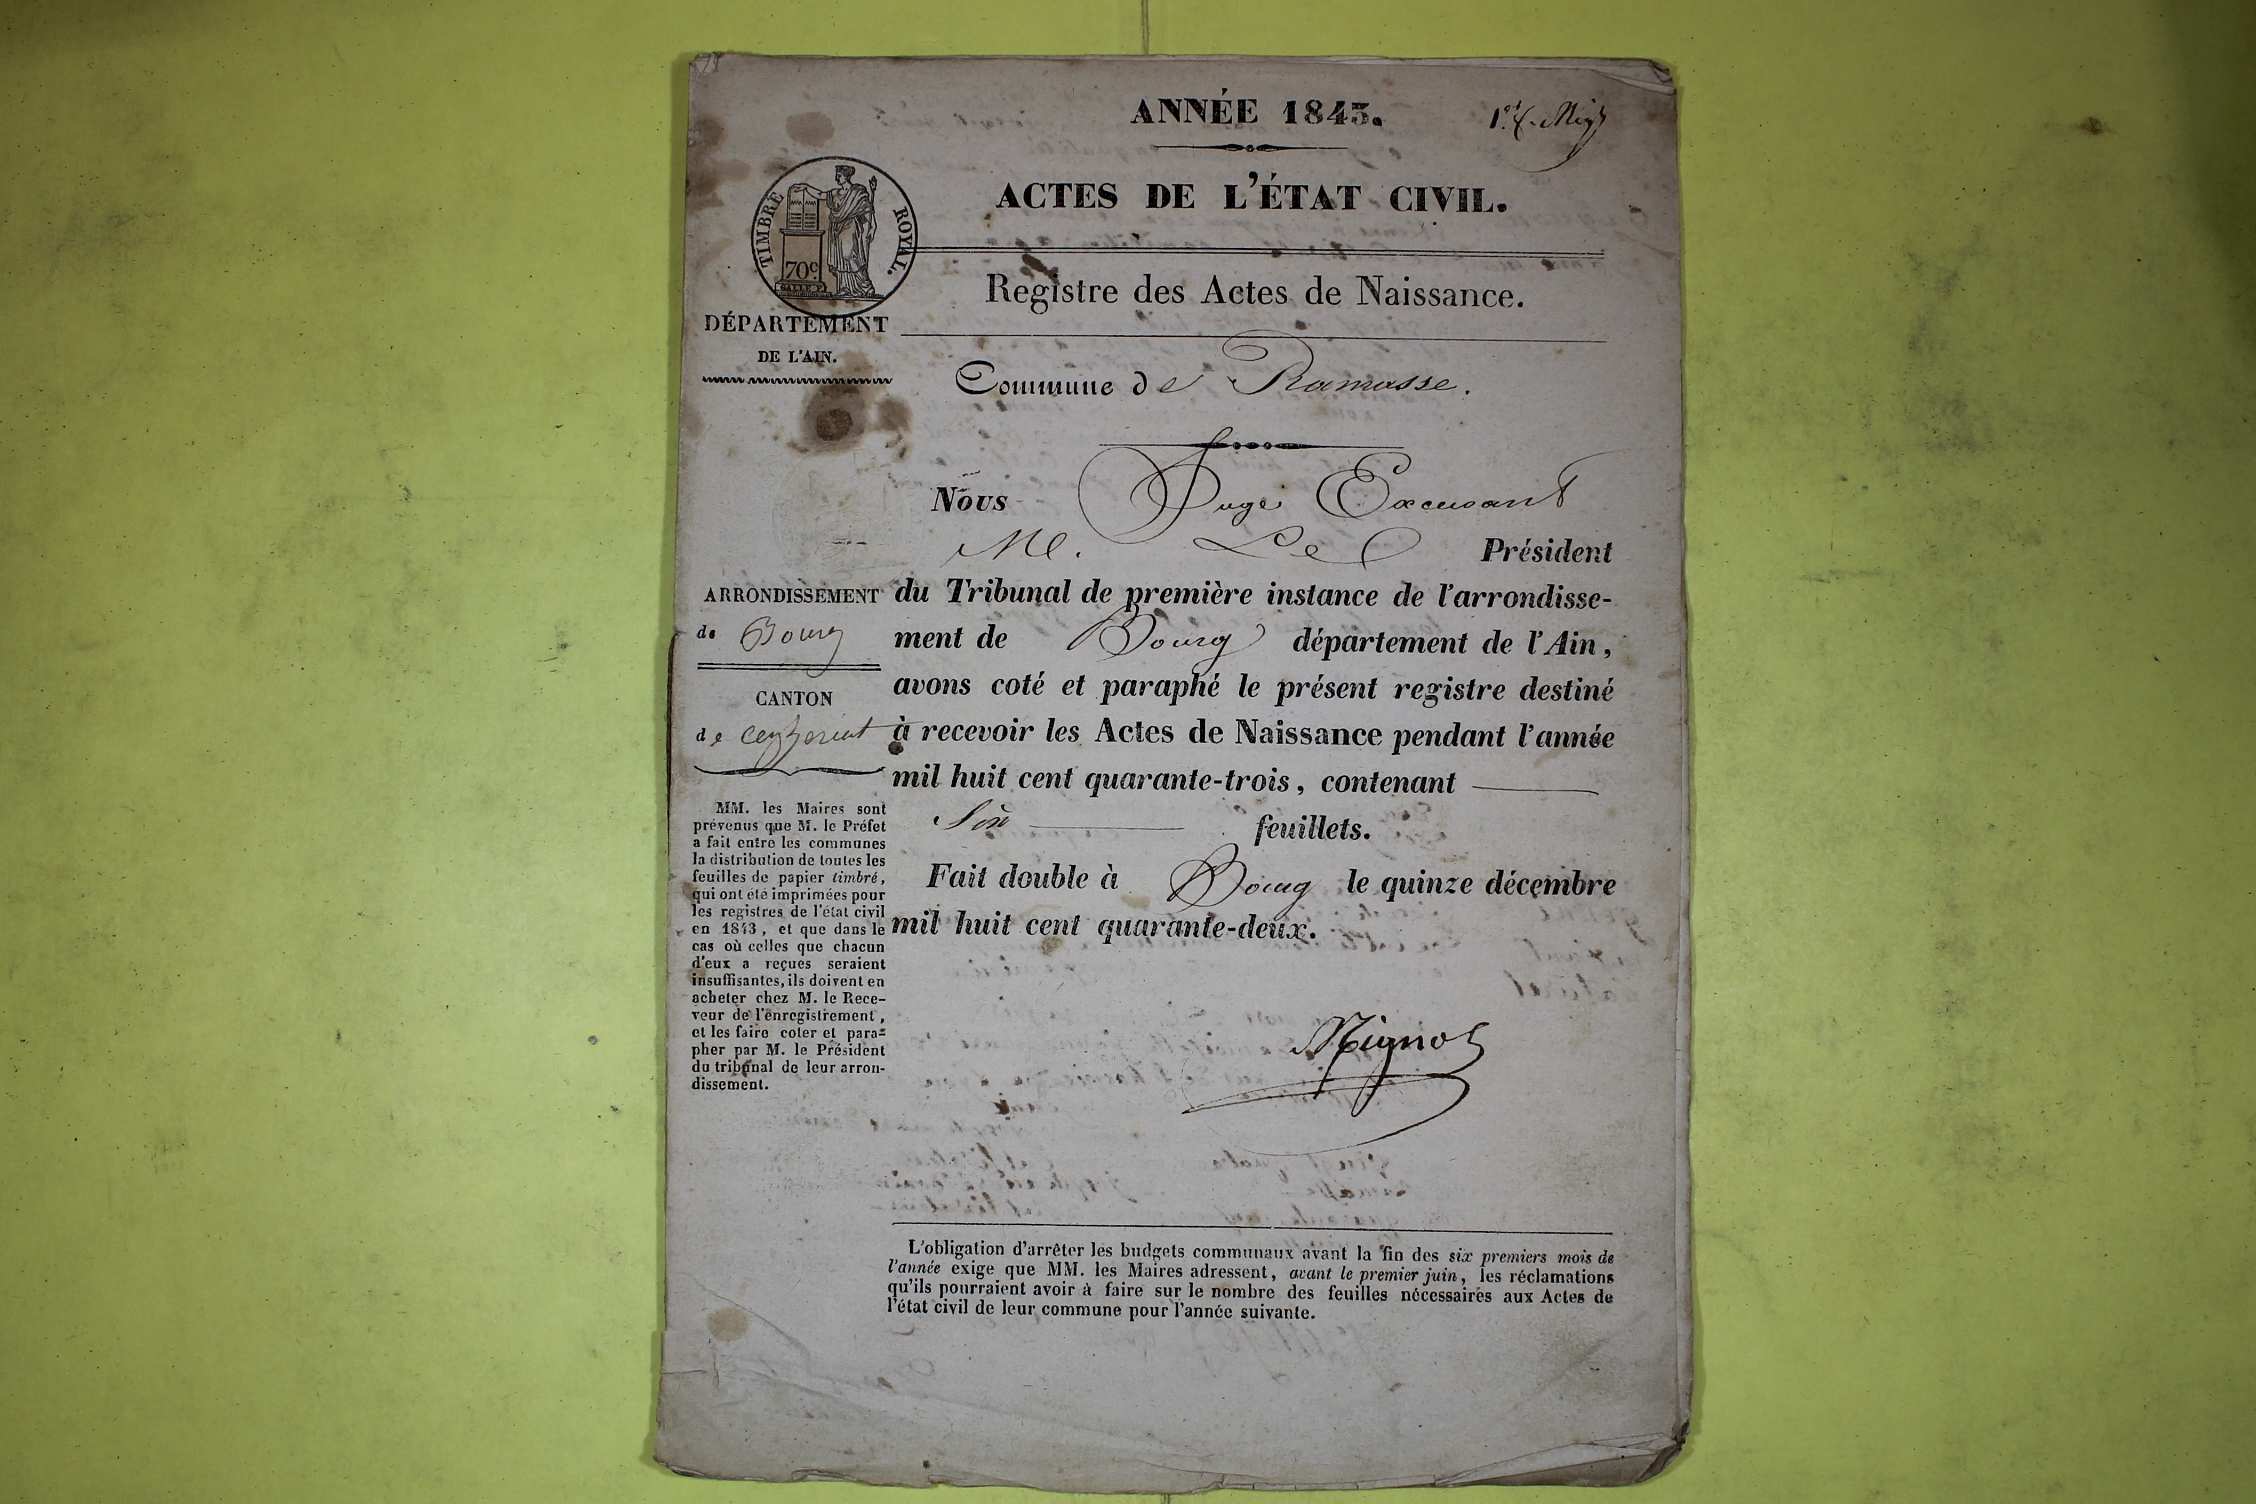 ANNÉE 1843.
ACTES DE L'ÉTAT CIVIL.
TIMBRE ROYAL.
70c
Registre des Actes de Naissance.
DÉPARTEMENT
DE L'AIN.
Commune de Ramasse.
Nous Juge Excusant
M. Le Président
ARRONDISSEMENT
de Bourg
CANTON
de ceyzeriat
du Tribunal de première instance de l'arrondisse-
ment de Bourg département de l'Ain,
avons coté et paraphé le présent registre destiné
à recevoir les Actes de Naissance pendant l'année
mil huit cent quarante-trois, contenant
Six feuillets.
Fait double à Bourg le quinze décembre
mil huit cent quarante-deux.
Mignot
MM. les Maires sont
prévenus que M. le Préfet
a fait entre les communes
la distribution de toutes les
feuilles de papier timbré,
qui ont été imprimées pour
les registres de l'état civil
en 1843, et que dans le
cas où celles que chacun
d'eux a reçues seraient
insuffisantes, ils doivent en
acheter chez M. le Rece-
veur de l'enregistrement,
et les faire coter et para-
pher par M. le Président
du tribunal de leur arron-
dissement.
L'obligation d'arrêter les budgets communaux avant la fin des six premiers mois de
l'année exige que MM. les Maires adressent, avant le premier juin, les réclamations
qu'ils pourraient avoir à faire sur le nombre des feuilles nécessaires aux Actes de
l'état civil de leur commune pour l'année suivante.